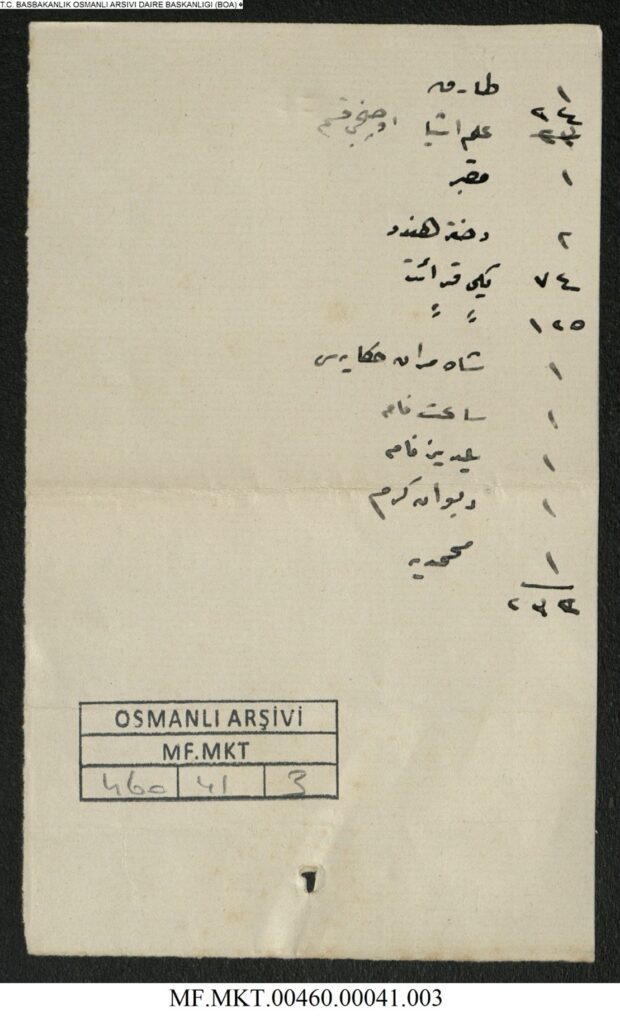 T.C. BASBAKANLIK OSMANLI ARSIVI DAIRE BASKANLIGI (BOA)
١ طارق
٢٤ علم اشيا اوچنجی قسم
١ مقبر
٢ دختر هندو
٧٤ يكی قرائت
١٢٥ " "
١ شاه مران حكايه سی
١ ساعت نامه
١ يلديز نامه
١ ديوان كرم
١ محمديه
٢٣٢
OSMANLI ARŞİVİ
MF.MKT
460 41 3
MF.MKT.00460.00041.003